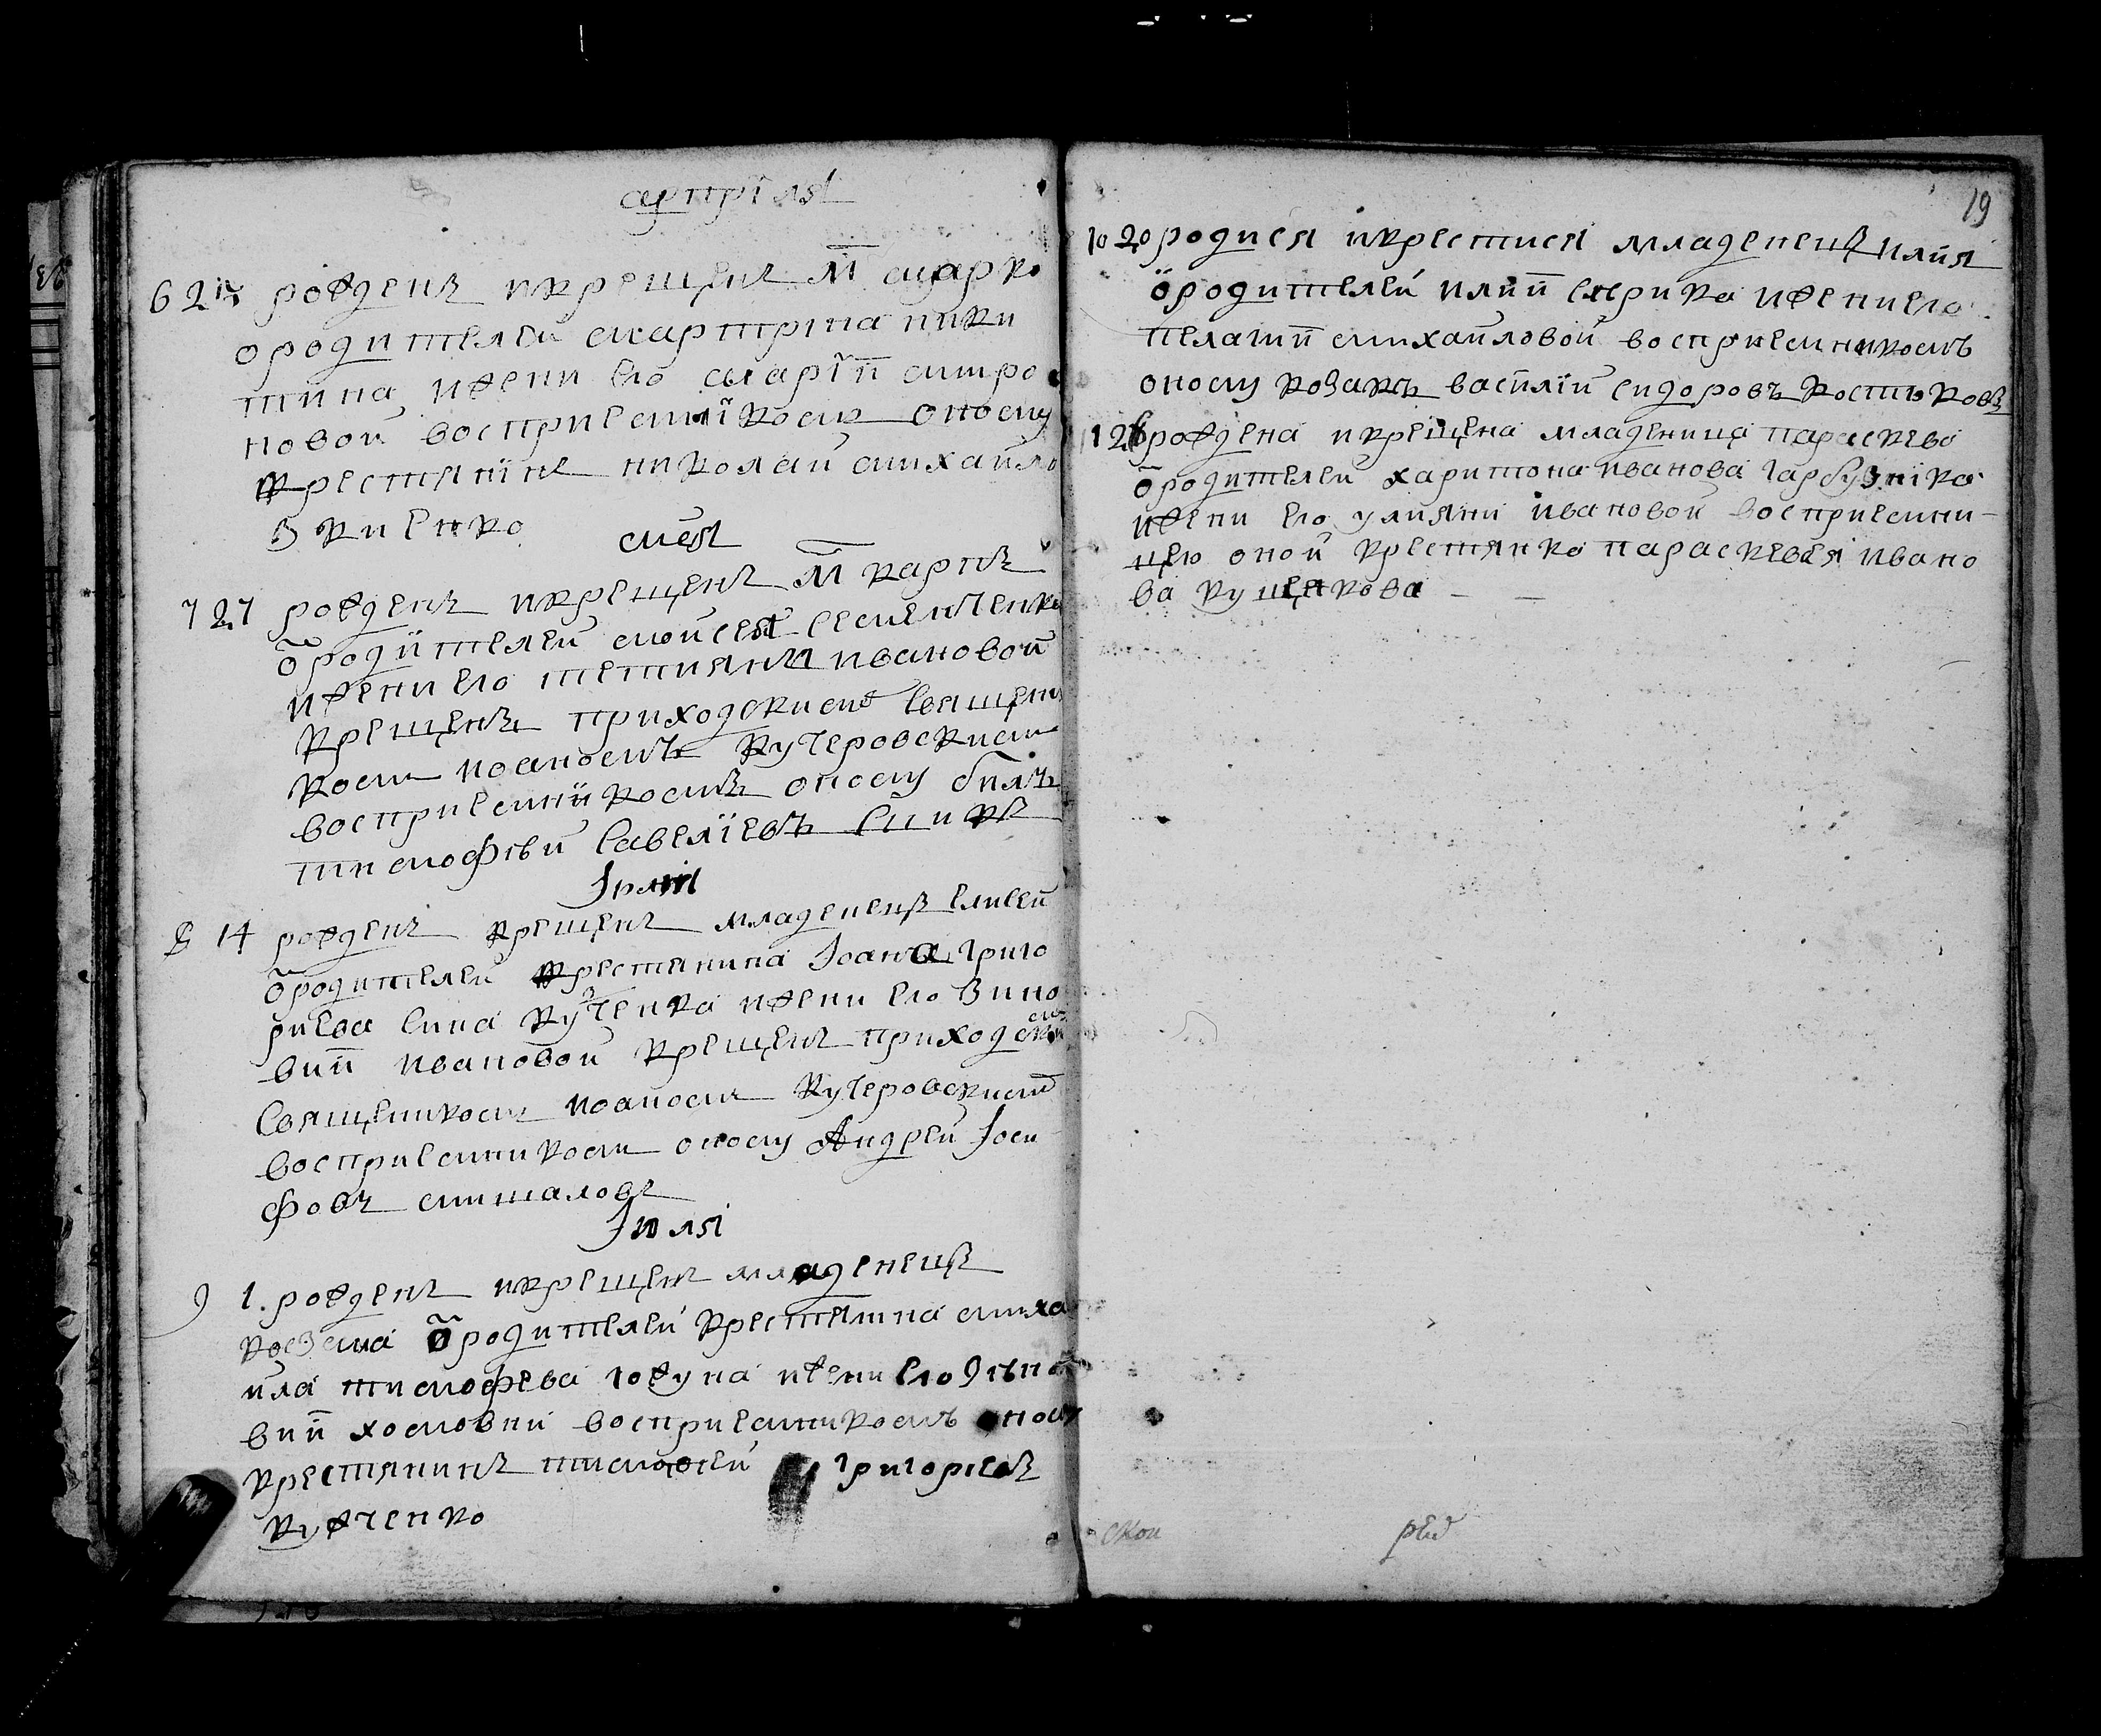 априля
6 24 рожденъ икрещенъ М марко
ородителей мартина ники
тина ижени его марїи митро
новой воспрїемнїкомъ оному
крестянїнъ николай михайло
зкиенко
мея
7 27 рожденъ икрещенъ М карпъ
ѿродителей мойсея семенченка
ижени его тетияни ивановой
крещенъ приходскимъ священ
комъ иоаномъ Кучеровскимъ
восприемнїкомъ оному билъ
тимофѣй савелїевъ
Іюнїя
8 14 рожденъ крещенъ младенецъ елисей
ѿродителей крестянина Іоанна григо
риева сина Кучченка ижени его Зино
вии ивановой крещенъ приходским
священикомъ иоаномъ Кучеровскимъ
восприемникомъ оному Андрей Іоси
фовъ мишаловъ
Іюля
9 1. рожденъ икрещенъ младенецъ
козема ѿродителей крестянина миха
ила тимофева годуна ижени его
вии хомовни восприемникомъ оному
крестянинъ тимофей григориевъ
Кужченко
19
10 20 родися икрестися младенецъ илия
ѿродителей илии ижени его
пелагии михайловой восприемникомъ
оному козакъ василїй сидоровъ Костюковъ
1 26 рождена икрещена младеница параскева
ѿродителей харитона иванова гарбузнїка
ижени его улияни ивановой восприемни-
цею оной крестянка параскевея ивано
ва куценкова